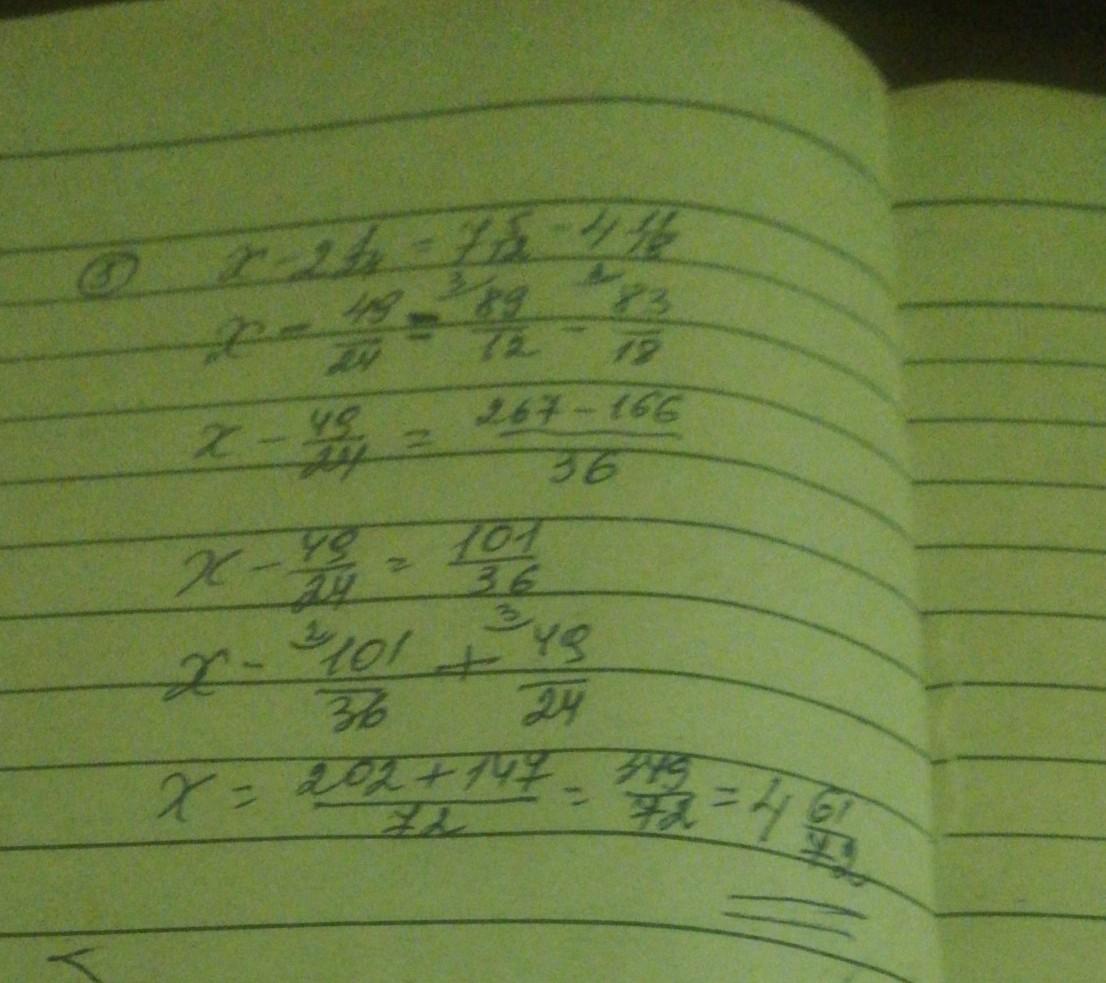 ⑧ x - 2 1/24 = 7 5/12 - 4 11/18
x - 49/24 = 3 89/12 - 2 83/18
x - 49/24 = 267 - 166/36
x - 49/24 = 101/36
x - 2 101/36 + 3 49/24
x = 202 + 147/72 = 349/72 = 4 61/72